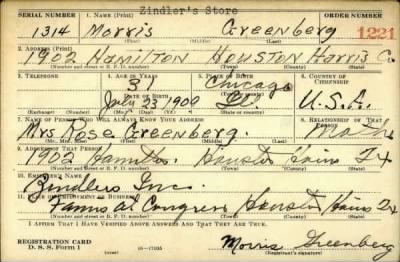 Zindler's Store
SERIAL NUMBER 1. NAME (Print) ORDER NUMBER
1314 Morris Greenberg 1221
(First) (Middle) (Last)
2. ADDRESS (Print)
1902 HAMILTON HOUSTON HARRIS Co
(Number and street or R. F. D. number) (Town) (County) (State)
3. TELEPHONE 4. AGE IN YEARS 5. PLACE OF BIRTH 6. COUNTRY OF CITIZENSHIP
Chicago
DATE OF BIRTH (Town or county)
July 23 1909 Ill. U.S.A.
(Exchange) (Number) (Mo.) (Day) (Yr.) (State or country)
7. NAME OF PERSON WHO WILL ALWAYS KNOW YOUR ADDRESS 8. RELATIONSHIP OF THAT PERSON
Mrs Rose Greenberg.
(Mr., Mrs., Miss) (First) (Middle) (Last)
9. ADDRESS OF THAT PERSON
1902 Hamilton. Houston Harris Tx
(Number and street or R. F. D. number) (Town) (County) (State)
10. EMPLOYER'S NAME
Zindlers Inc.
11. PLACE OF EMPLOYMENT OR BUSINESS
Fannin at Congress Houston Harris Tx
(Number and street or R. F. D. number) (Town) (County) (State)
I AFFIRM THAT I HAVE VERIFIED ABOVE ANSWERS AND THAT THEY ARE TRUE.
REGISTRATION CARD
D. S. S. Form 1 Morris Greenberg
(Registrant's signature)